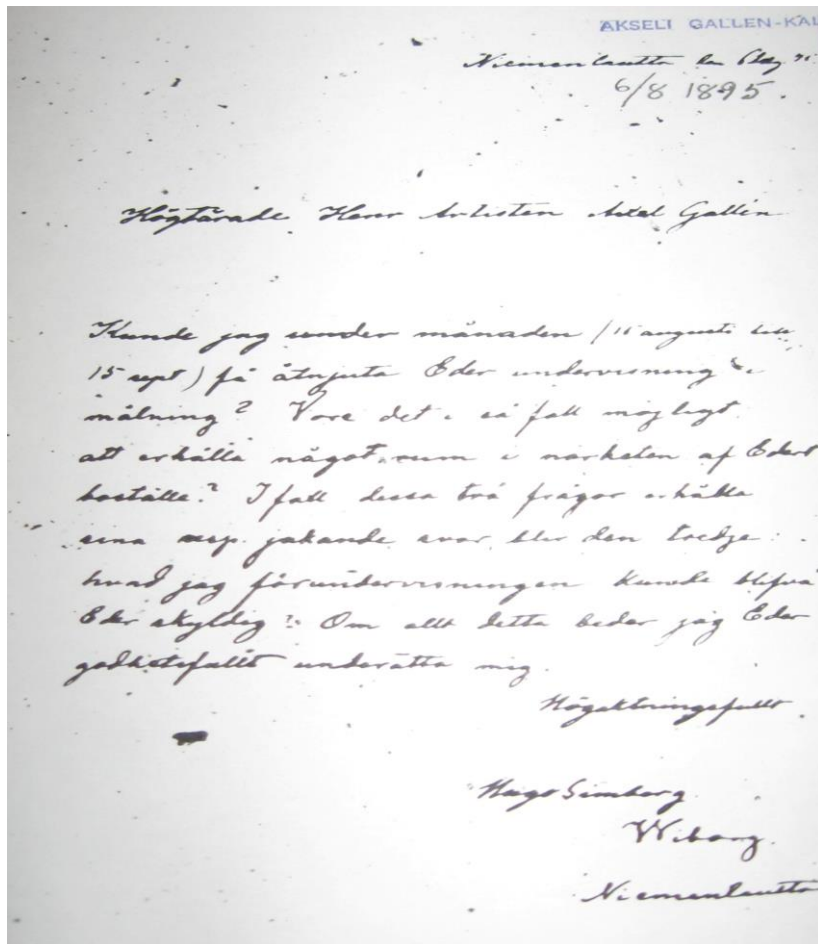 AKSELI GALLEN-KAL
Niemenlautta den 6 Aug 95.
6/8 1895.
Högtärade Herr Artisten Axel Gallén
Kunde jag under månaden (15 augusti till
15 sept) få åtnjuta Eder undervisning i
målning? Vore det i så fall möjligt
att erhålla något rum i närheten af Edert
boställe? I fall dessa två frågor erhålla
sina resp. jakande svar, blir den tredje:
hvad jag för undervisningen kunde blifva
Eder skyldig? Om allt detta beder jag Eder
godhetsfullt underätta mig.
Högaktningsfullt.
Hugo Simberg
Wiborg.
Niemenlautta